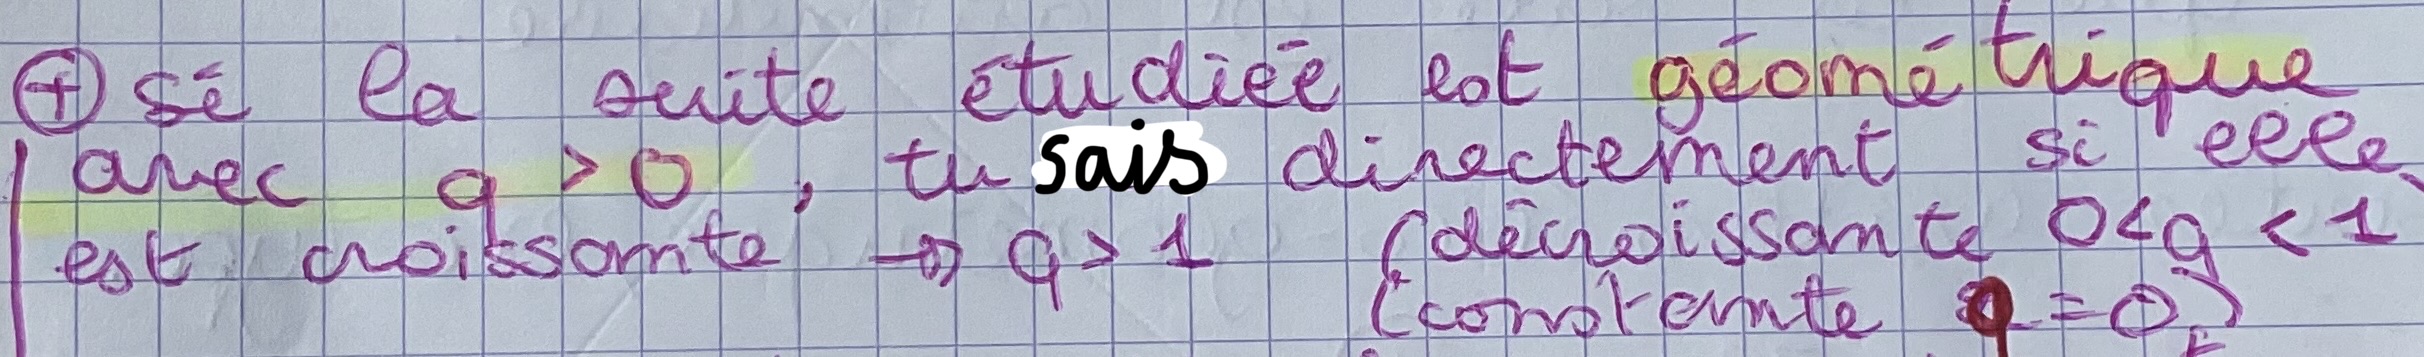 ⊕ si la suite étudiée est géométrique
avec q > 0, tu sais directement si elle
est croissante → q > 1 (décroissante 0<q<1
(constante q = 0)